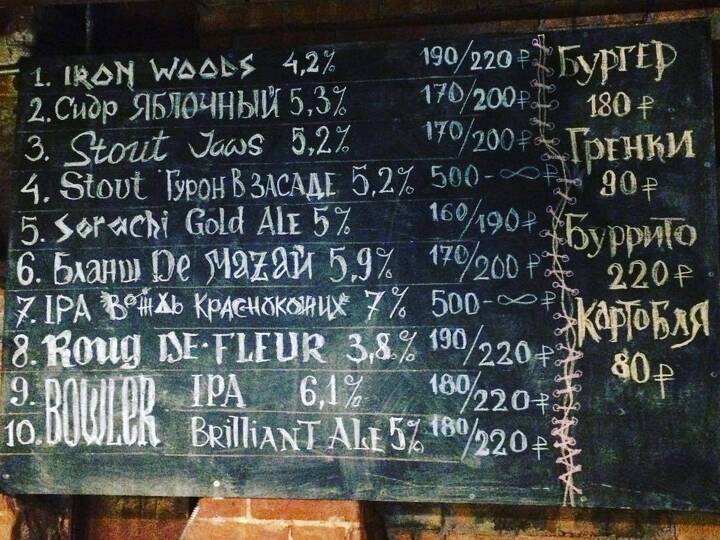 1. IRON WOODS 4,2% 190/220₽
2. Сидр ЯБЛОЧНЫЙ 5,3% 170/200₽
3. Stout Jaws 5,2% 170/200₽
4. Stout ГУРОН В ЗАСАДЕ 5,2% 500-∞₽
5. Sorachi Gold ALE 5% 160/190₽
6. Бланш De Мазай 5,9% 170/200₽
7. IPA Вождь Краснокожих 7% 500-∞₽
8. Roug DE·FLEUR 3,8% 190/220₽
9. BOWLER IPA 6,1% 180/220₽
10. BRilliANT ALE 5% 180/220₽
Бургер
180₽
Гренки
90₽
Буррито
220₽
Картобля
80₽